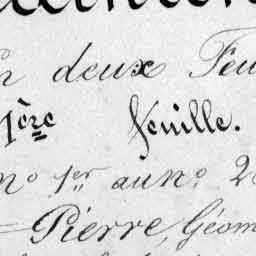 En deux Feu
1ère feuille.
no 1er au no. 2
= Pierre, Géom